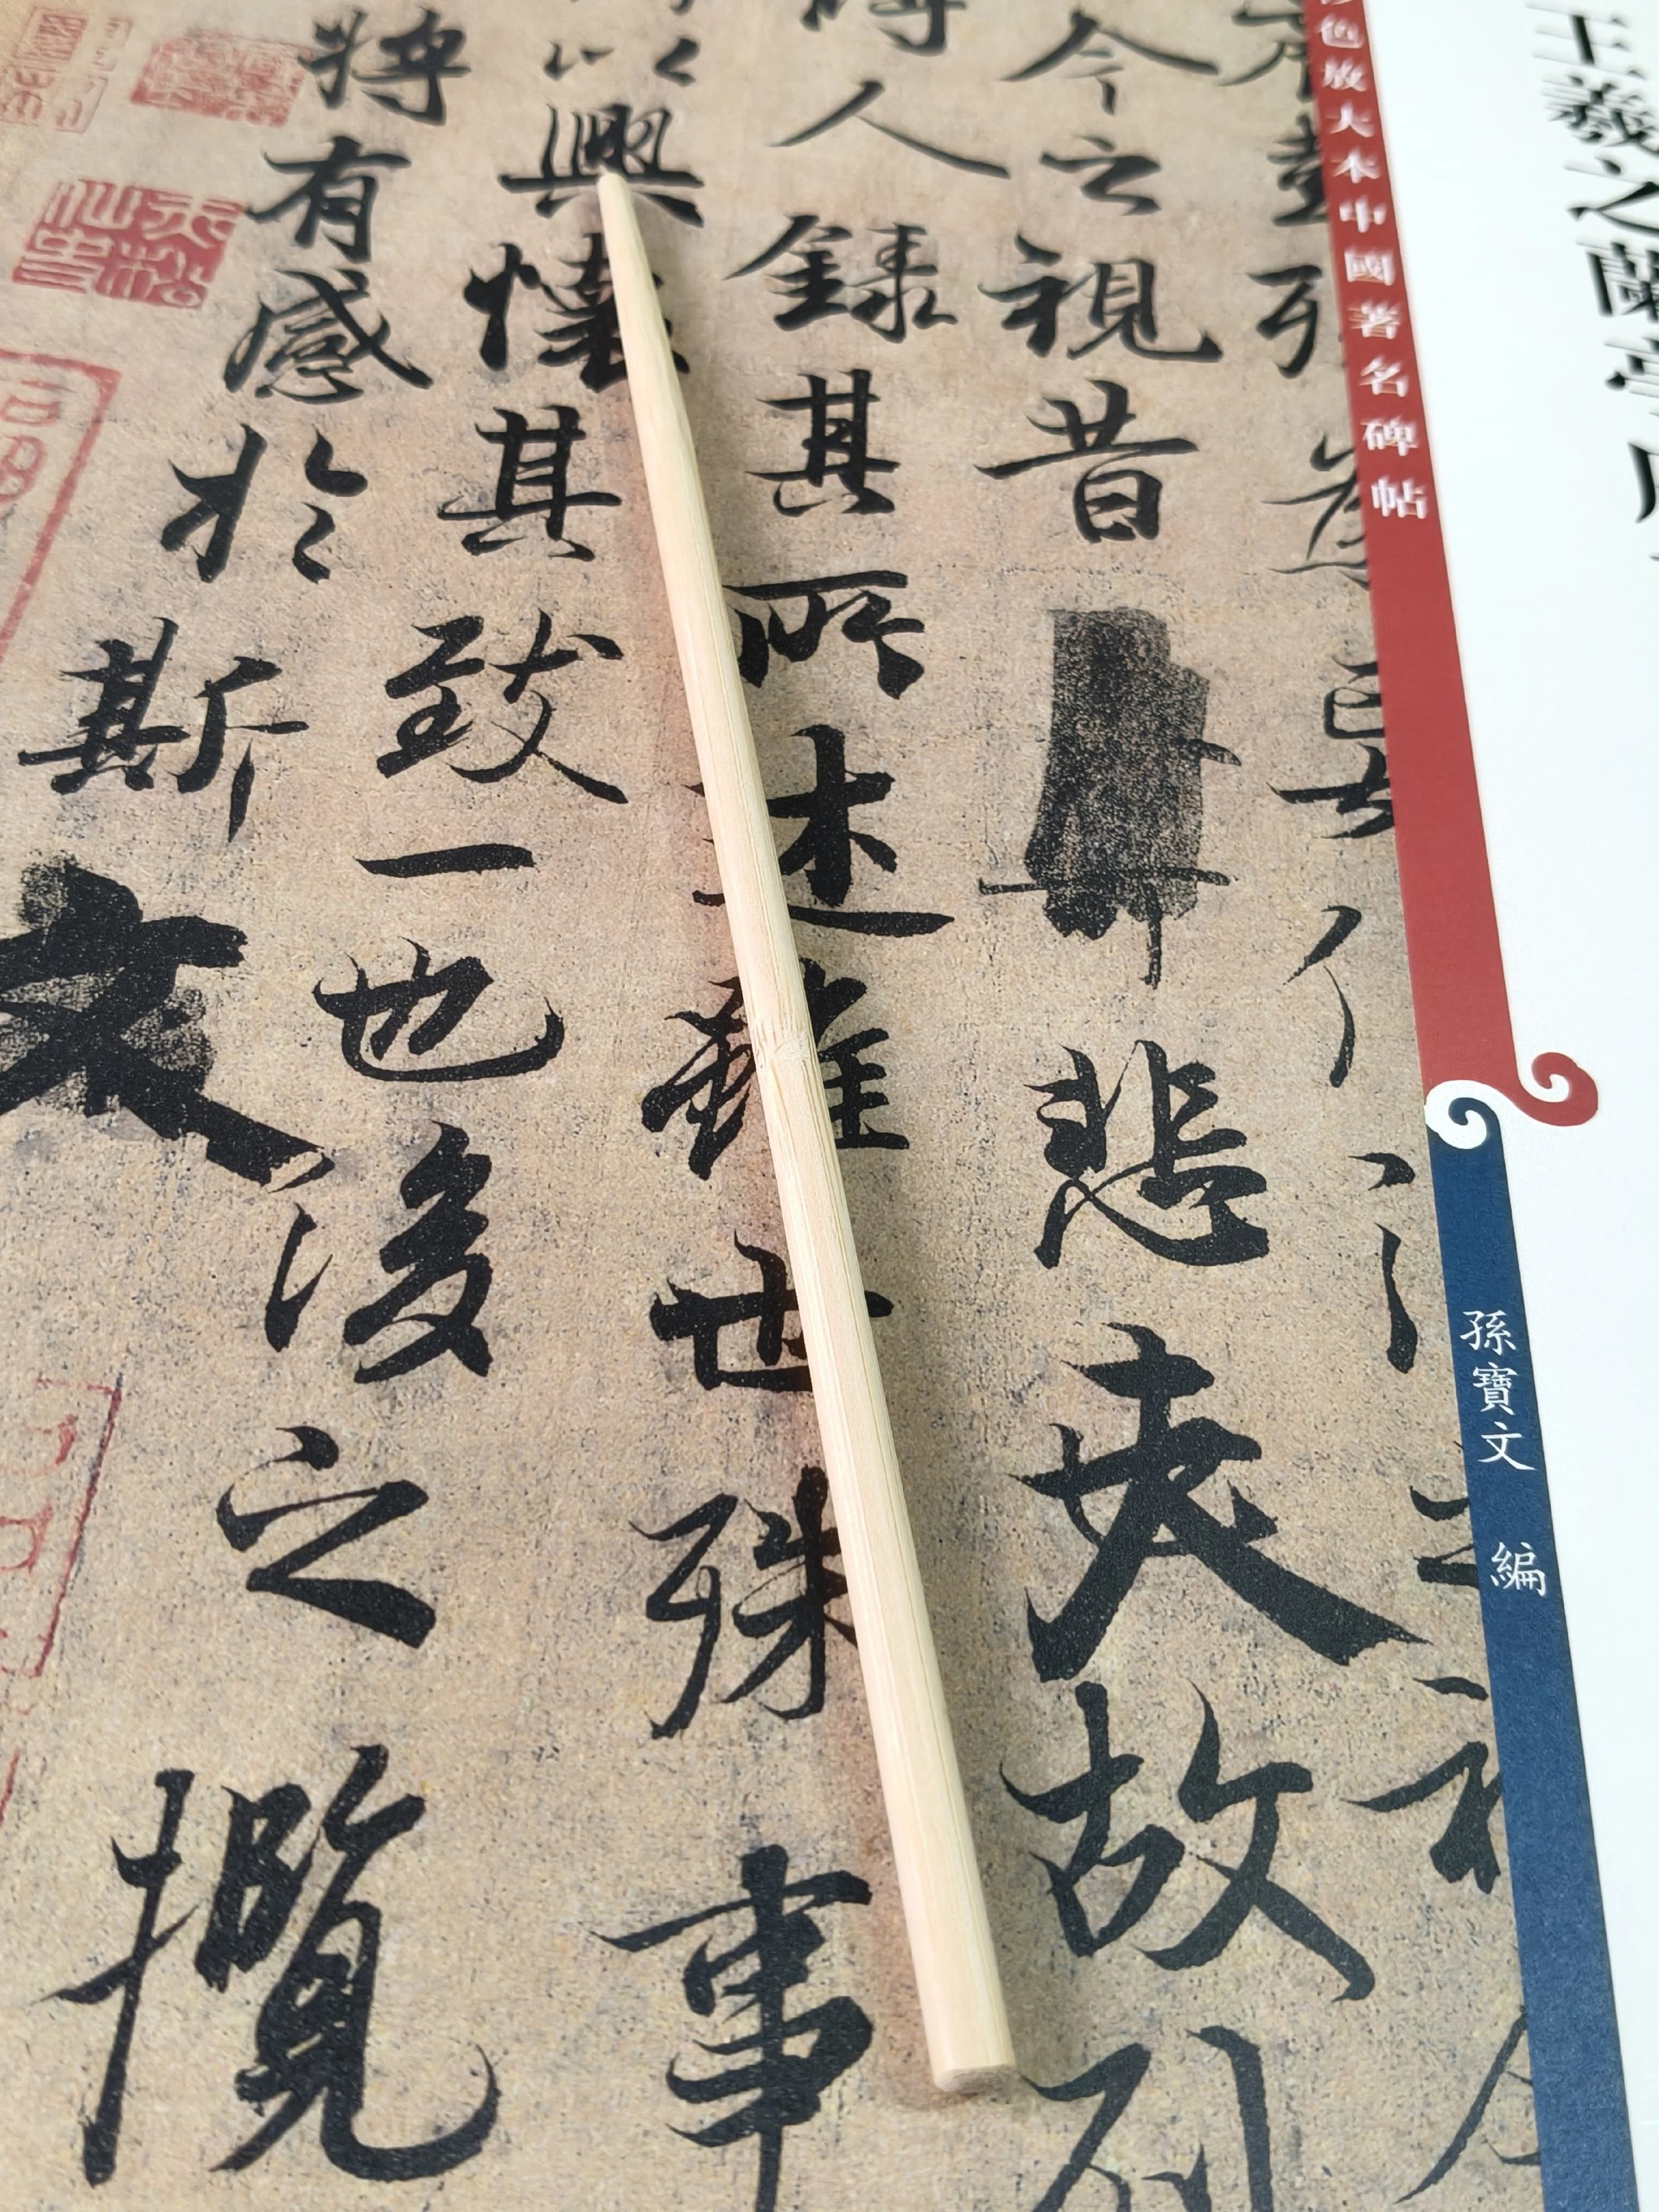 王羲之蘭亭
色放大本中國著名碑帖
孫寶文 編
今之視昔悲夫故列
時人錄其所述雖世殊事
以興懷其致一也後之攬
將有感於斯文